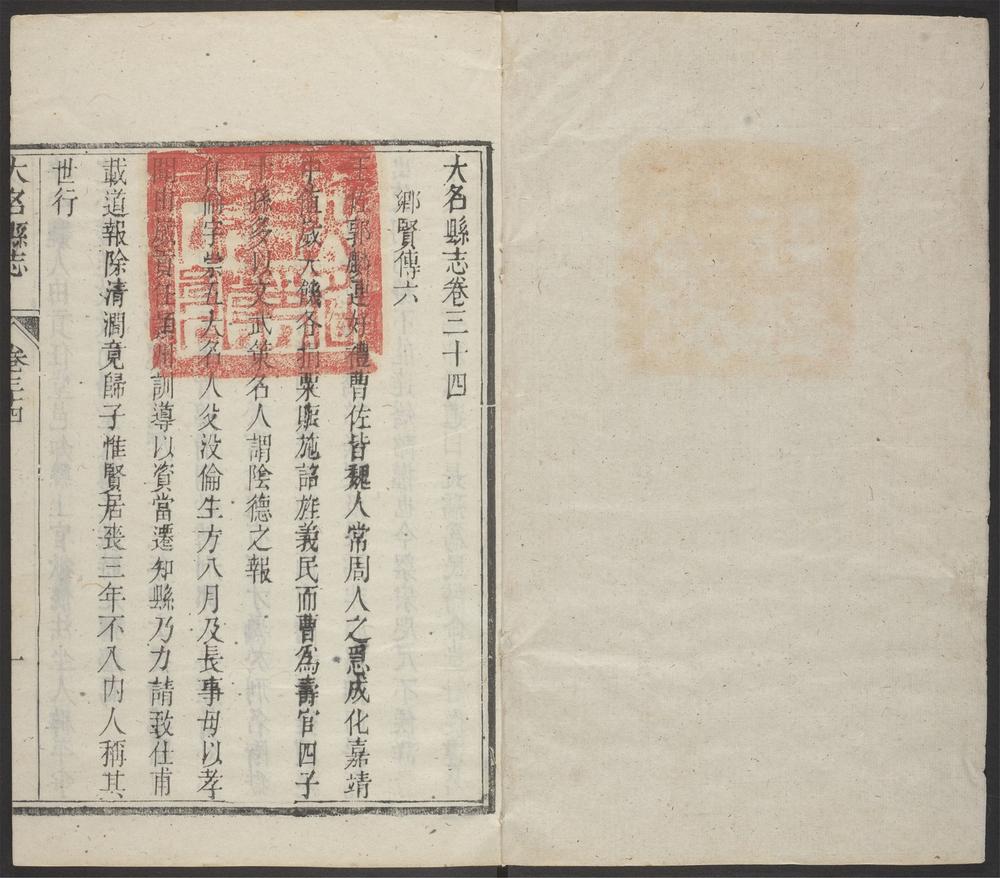 大名縣志卷三十四
鄉賢傳六
王佐郭麟連好禮曹佐皆魏人常周人之急成化嘉靖
中值歲大饑各捐粟賑施詔旌義民而曹為壽官四子
十孫多以文武策名人謂陰德之報
倫字崇五大名人父没倫生方八月及長事母以孝
聞由歲貢任訓導以資當遷知縣乃力請致仕甫
載道報除清澗竟歸子惟賢居喪三年不入內人稱其
世行
大名縣志
卷三十四
一